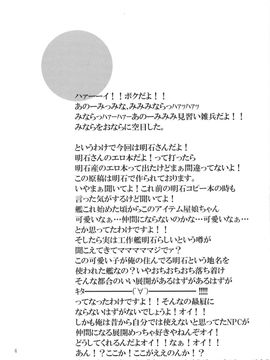 ハァーーイ！！ボクだよ！！
あのーみっみな、みみみならっハァッハァッ
みならっハァーハァーあのーみみみ見習い雑兵だよ！！
みならをおならに空目した。
というわけで今回は明石さんだよ！
明石さんのエロ本だよ！って打ったら
明石産のエロ本って出たけどまぁ間違ってないね！
この原稿は明石にてで作られております。
いやまぁ聞いてよ！これ前の明石コピー本の時も
言った気がするけど聞いてよ！
艦これ始めた頃からこのアイテム屋娘ちゃん
可愛いなぁ…仲間にならないのかな…可愛いなぁ…
とか思ってたわけですよ！
そしたら実は工作艦明石らしいという噂が
聞こえてきてママママママジでって！
この可愛い子が俺の住んでる明石という地名を
使われた艦なの？いやおちおちおち落ち着け
そんな都合のいい展開があるはずがあるはずが
キタ━━━━━(ﾟ∀ﾟ)━━━━━!!!!!
ってなったわけですよ！そんなの最屓に
ならないはずがないでしょうよ！オイ！！
しかも俺は昔から自分では使えないと思ってたNPCが
仲間になる展開めっちゃ好きやねんぞ！オイ！！
どうしてくれるんだよ！オイ！オイ！！
あん！？ここか！ここがええのんか！？